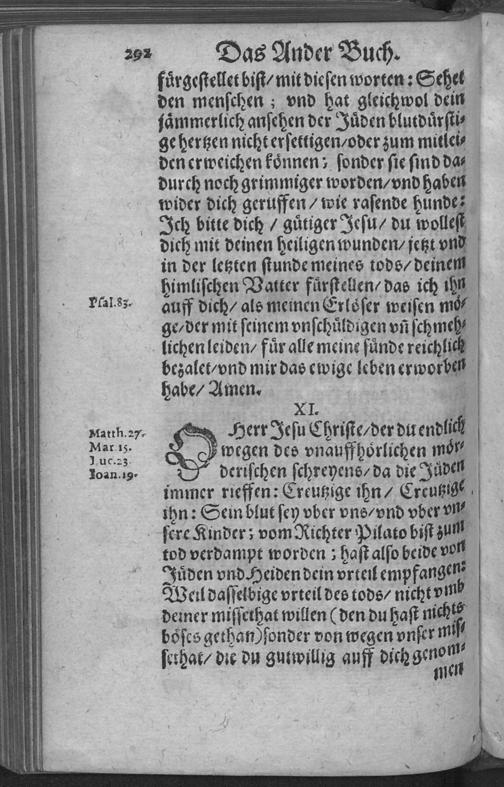 292 Das Ander Buch.
fürgestellet bist/ mit diesen worten: Sehet
den menschen; vnd hat gleichwol dein
jämmerlich ansehen der Jüden blutdürsti-
ge hertzen nicht ersettigen/ oder zum mitlei-
den erweichen können; sonder sie sind da-
durch noch grimmiger worden/ vnd haben
wider dich geruffen/ wie rasende hunde:
Ich bitte dich / gütiger Jesu/ du wollest
dich mit deinen heiligen wunden/ jetzt vnd
in der letzten stunde meines tods/ deinem
himlischen Vatter fürstellen/ das ich ihn
Psal.83. auff dich/ als meinen Erlöser weisen mö-
ge/ der mit seinem vnschüldigen vñ schmeh-
lichen leiden/ für alle meine sünde reichlich
bezalet/ vnd mir das ewige leben erworben
habe/ Amen.
XI.
Matth.27. O Herr Jesu Christe/ der du endlich
Mar.15. wegen des vnauffhörlichen mör-
Luc.23. derischen schreyens/ da die Jüden
Ioan.19. immer rieffen: Creutzige ihn/ Creutzige
ihn: Sein blut sey vber vns/ vnd vber vn-
sere Kinder; vom Richter Pilato bist zum
tod verdampt worden; hast also beide von
Jüden vnd Heiden dein vrteil empfangen:
Weil dasselbige vrteil des tods/ nicht vmb
deiner missethat willen (den du hast nichts
böses gethan) sonder von wegen vnser mis-
sethat/ die du gutwillig auff dich genom-
men